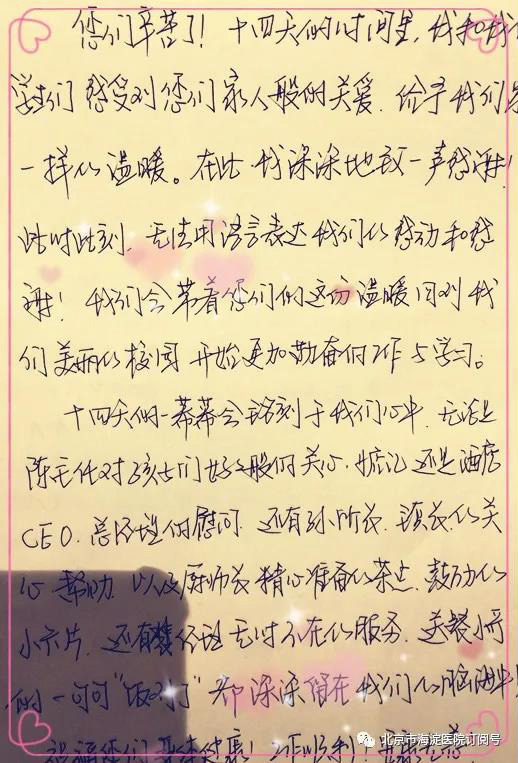 您们辛苦了！十四天的时间里，我和我
学生们感受到您们家人般的关爱，给予我们
一样的温暖。在此我深深地致一声感谢！
此时此刻，无法用语言表达我们的感动和感
谢！我们会带着您们的这份温暖回到我
们美丽的校园开始更加勤奋的工作与学习。
十四天的一幕幕会铭刻于我们心中，无论是
陈主任对孩子们好父般的关心、惦记还是酒店
CEO、总经理的慰问，还有孙所长、镇长的关
心帮助，以及厨师长精心准备的茶点、鼓励的
小卡片，还有 经理无时不在的服务，送餐小哥
的一句句“饭到了”都深深留在我们的脑海中！
祝福您们身体健康，工作顺利！
北京市海淀医院订阅号